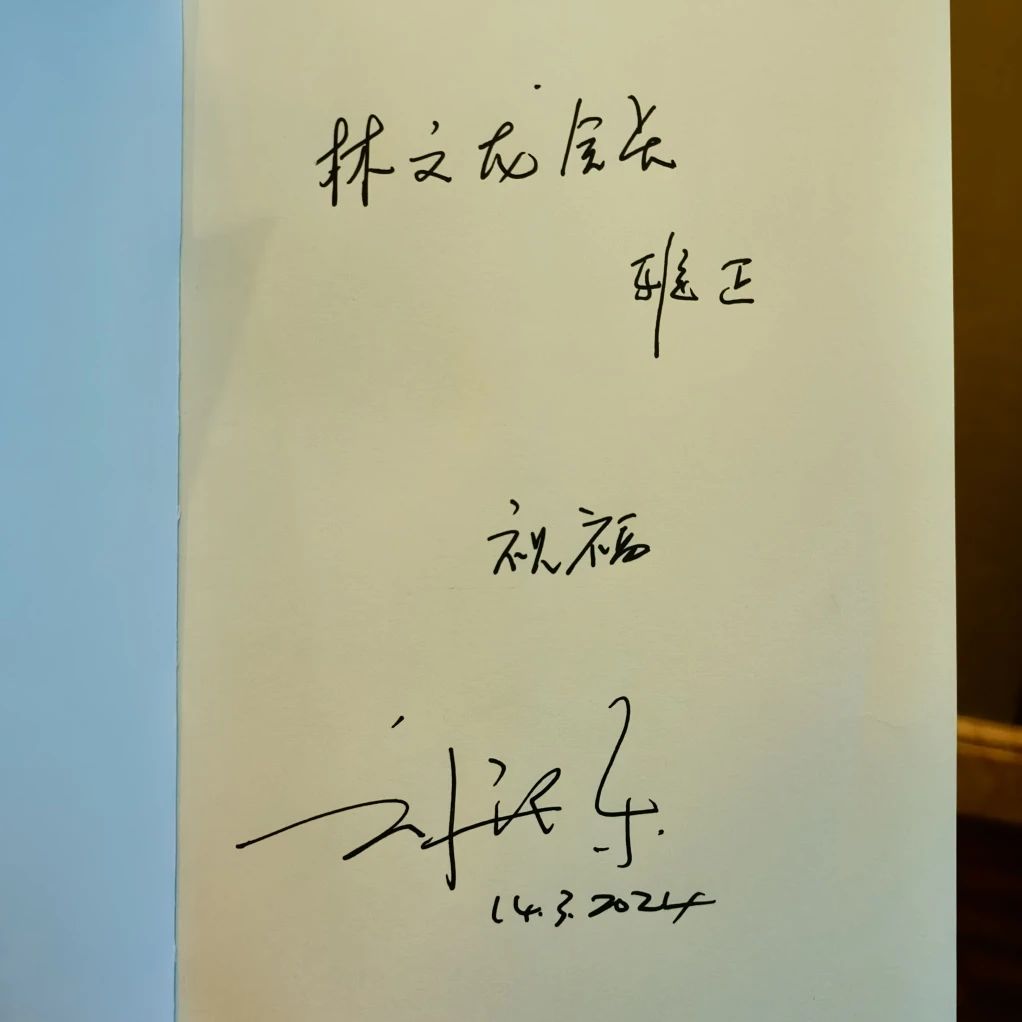 林文龙会长
雅正
祝福
刘
14.3.2024